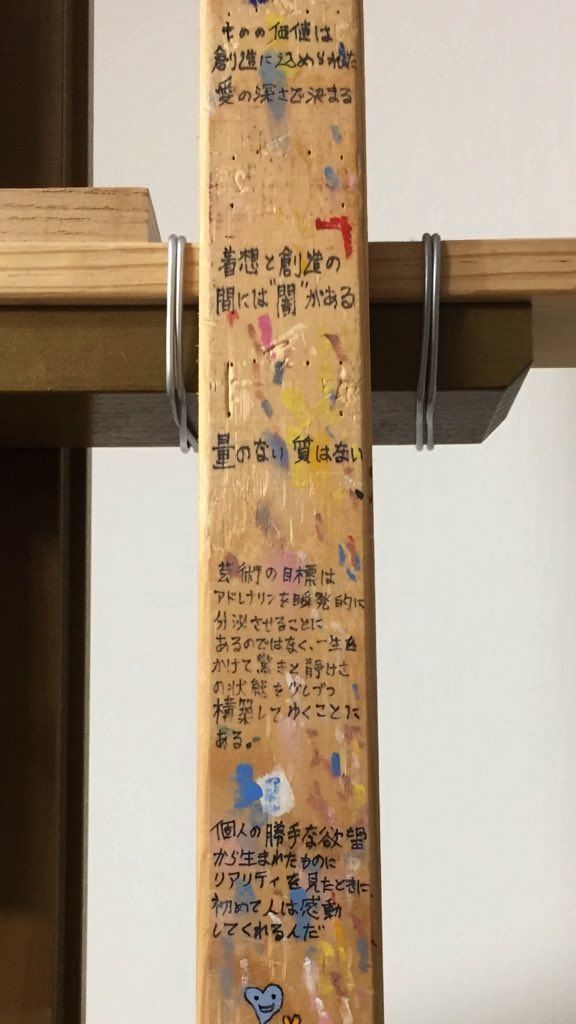 ものの価値は
創造に込められた
愛の深さで決まる
着想と創造の
間には"闇"がある
量のない質はない
芸術の目標は
アドレナリンを瞬発的に
分泌させることに
あるのではなく、一生を
かけて驚きと静けさ
の状態を少しづつ
構築してゆくことに
ある。
個人の勝手な欲望
から生まれたものに
リアリティを見たときに、
初めて人は感動
してくれるんだ